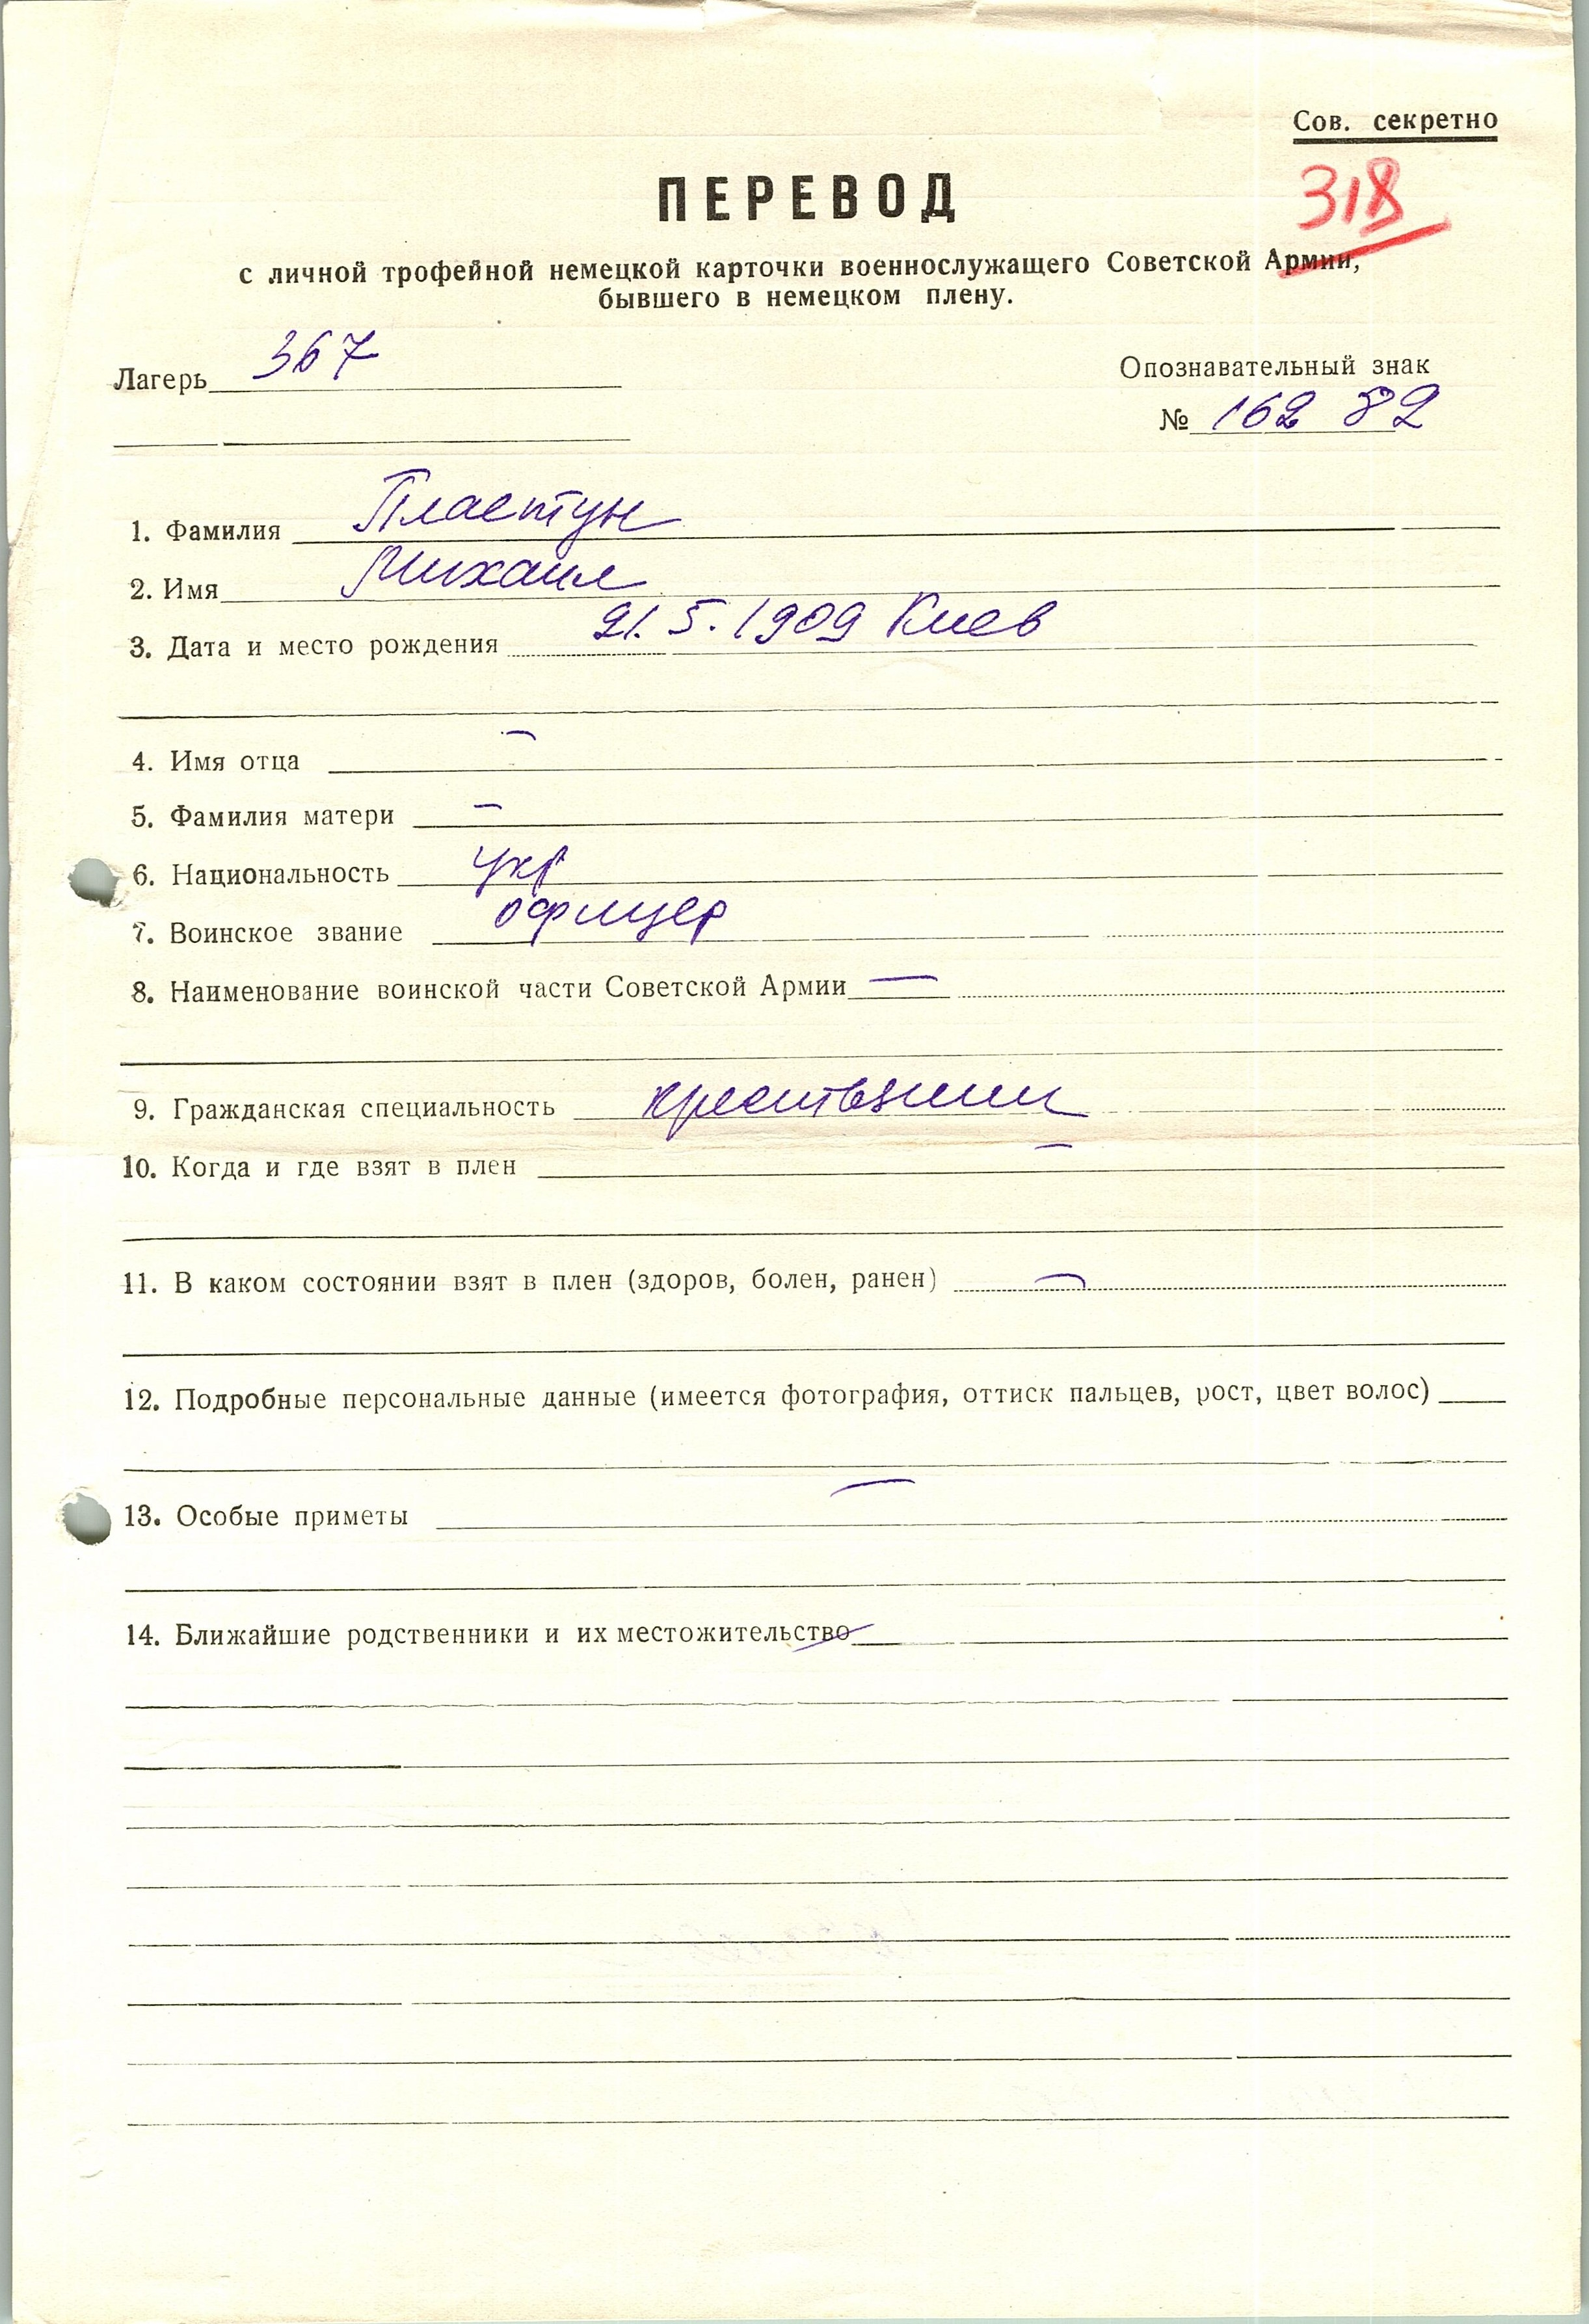 Сов. секретно
318
ПЕРЕВОД
с личной трофейной немецкой карточки военнослужащего Советской Армии,
бывшего в немецком плену.
Лагерь 367
Опознавательный знак
№ 162 82
1. Фамилия Пластун
2. Имя Михаил
3. Дата и место рождения 21.5.1909 Киев
4. Имя отца —
5. Фамилия матери —
6. Национальность укр
7. Воинское звание офицер
8. Наименование воинской части Советской Армии —
9. Гражданская специальность крестьянин
10. Когда и где взят в плен —
11. В каком состоянии взят в плен (здоров, болен, ранен) —
12. Подробные персональные данные (имеется фотография, оттиск пальцев, рост, цвет волос)
13. Особые приметы —
14. Ближайшие родственники и их местожительство —